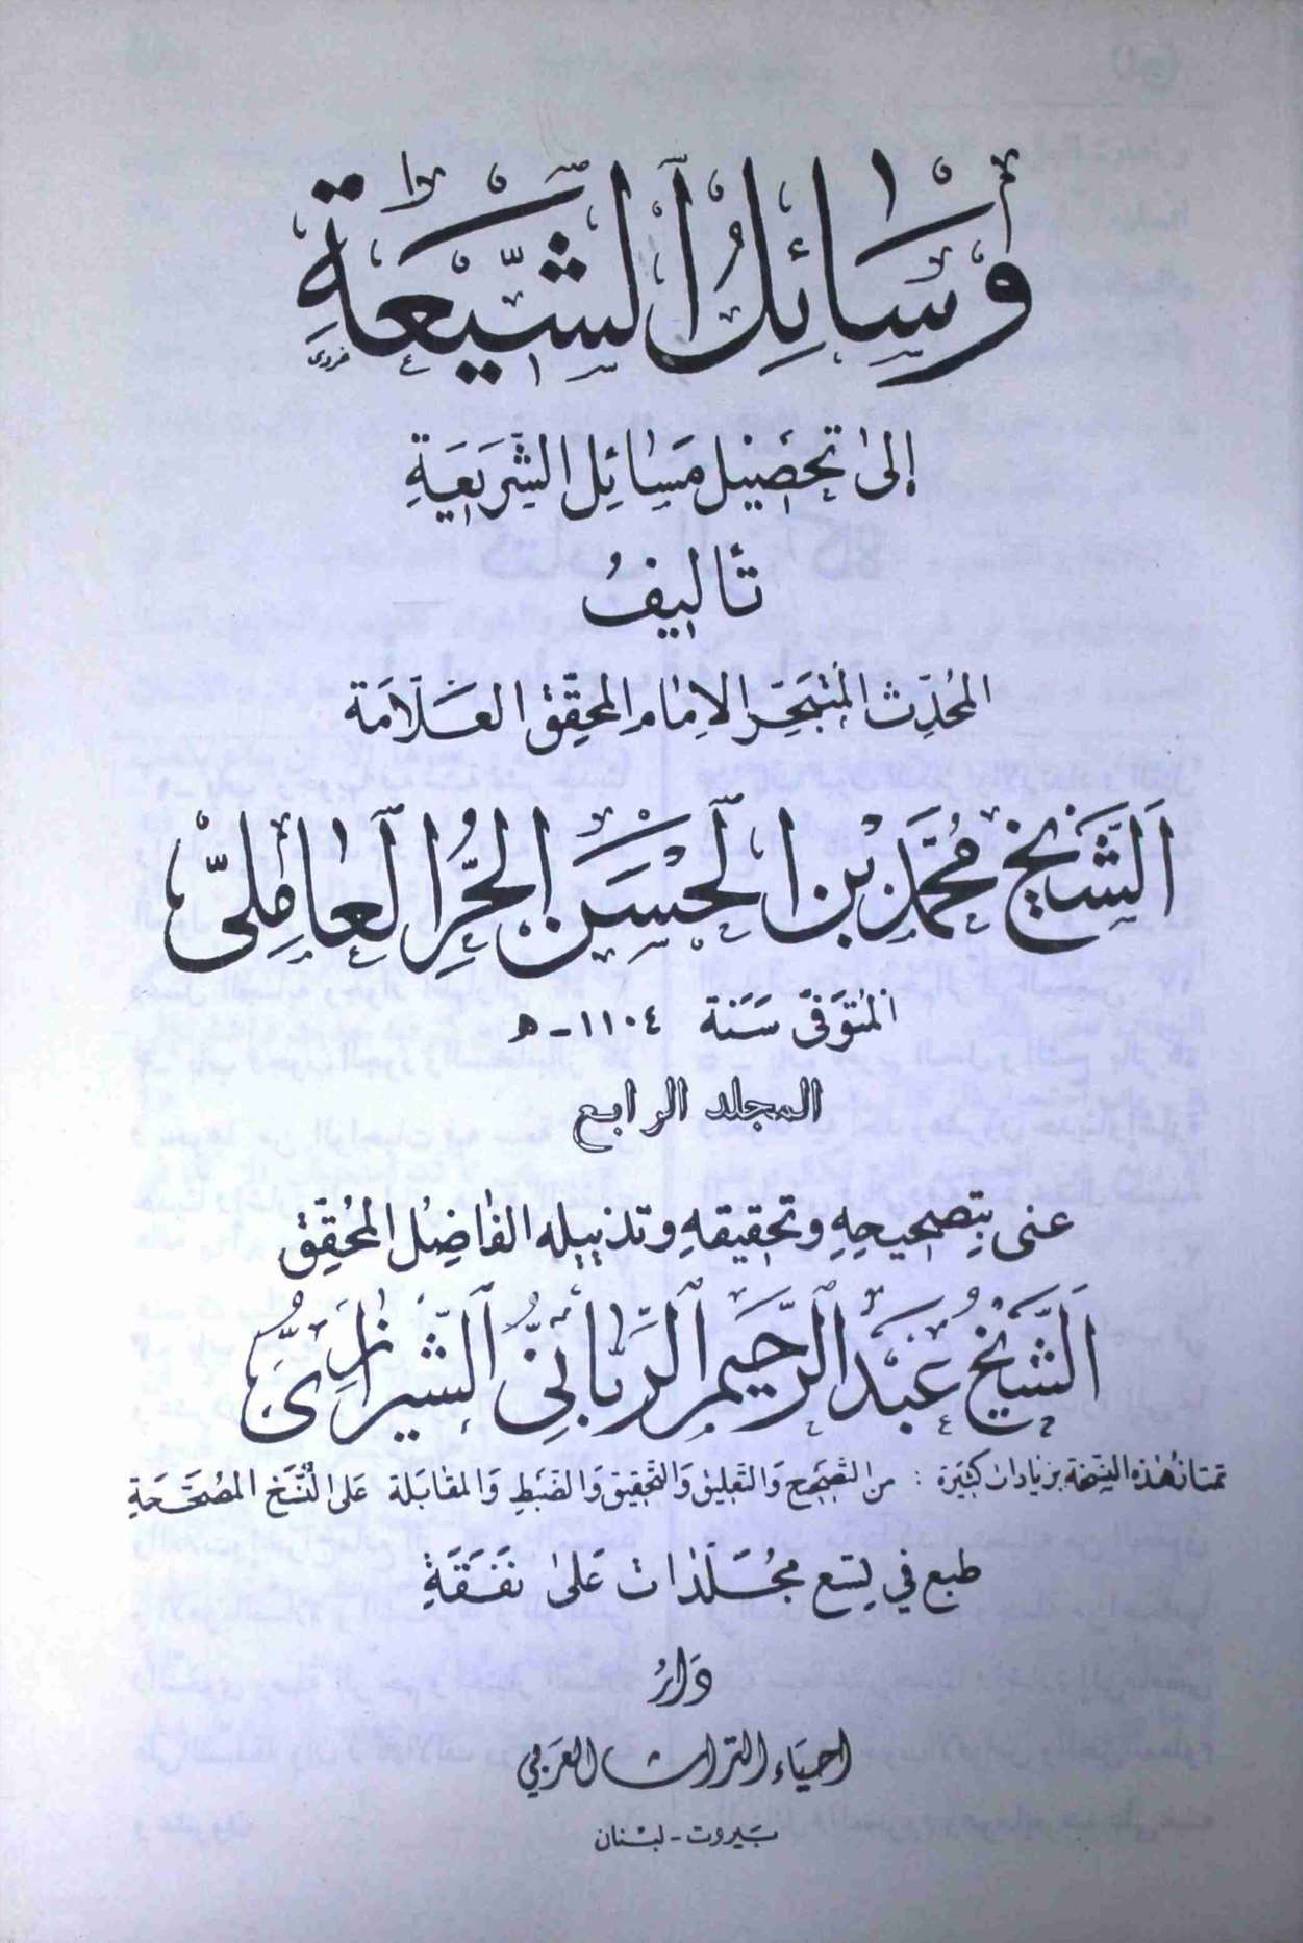 وسائل الشيعة
إلى تحصيل مسائل الشريعة
تأليف
المحدث المتبحر الامام المحقق العلامة
الشيخ محمد بن الحسن الحر العاملي
المتوفى سنة ١١٠٤ - ه
المجلد الرابع
عنى بتصحيحه وتحقيقه وتذييله الفاضل المحقق
الشيخ عبد الرحيم الرباني الشيرازي
تمتاز هذه النسخة بزيادات كثيرة : من التصحيح والتعليق والتحقيق والضبط والمقابلة على النسخ المصححة
طبع في تسع مجلدات على نفقة
دار
احياء التراث العربي
بيروت - لبنان